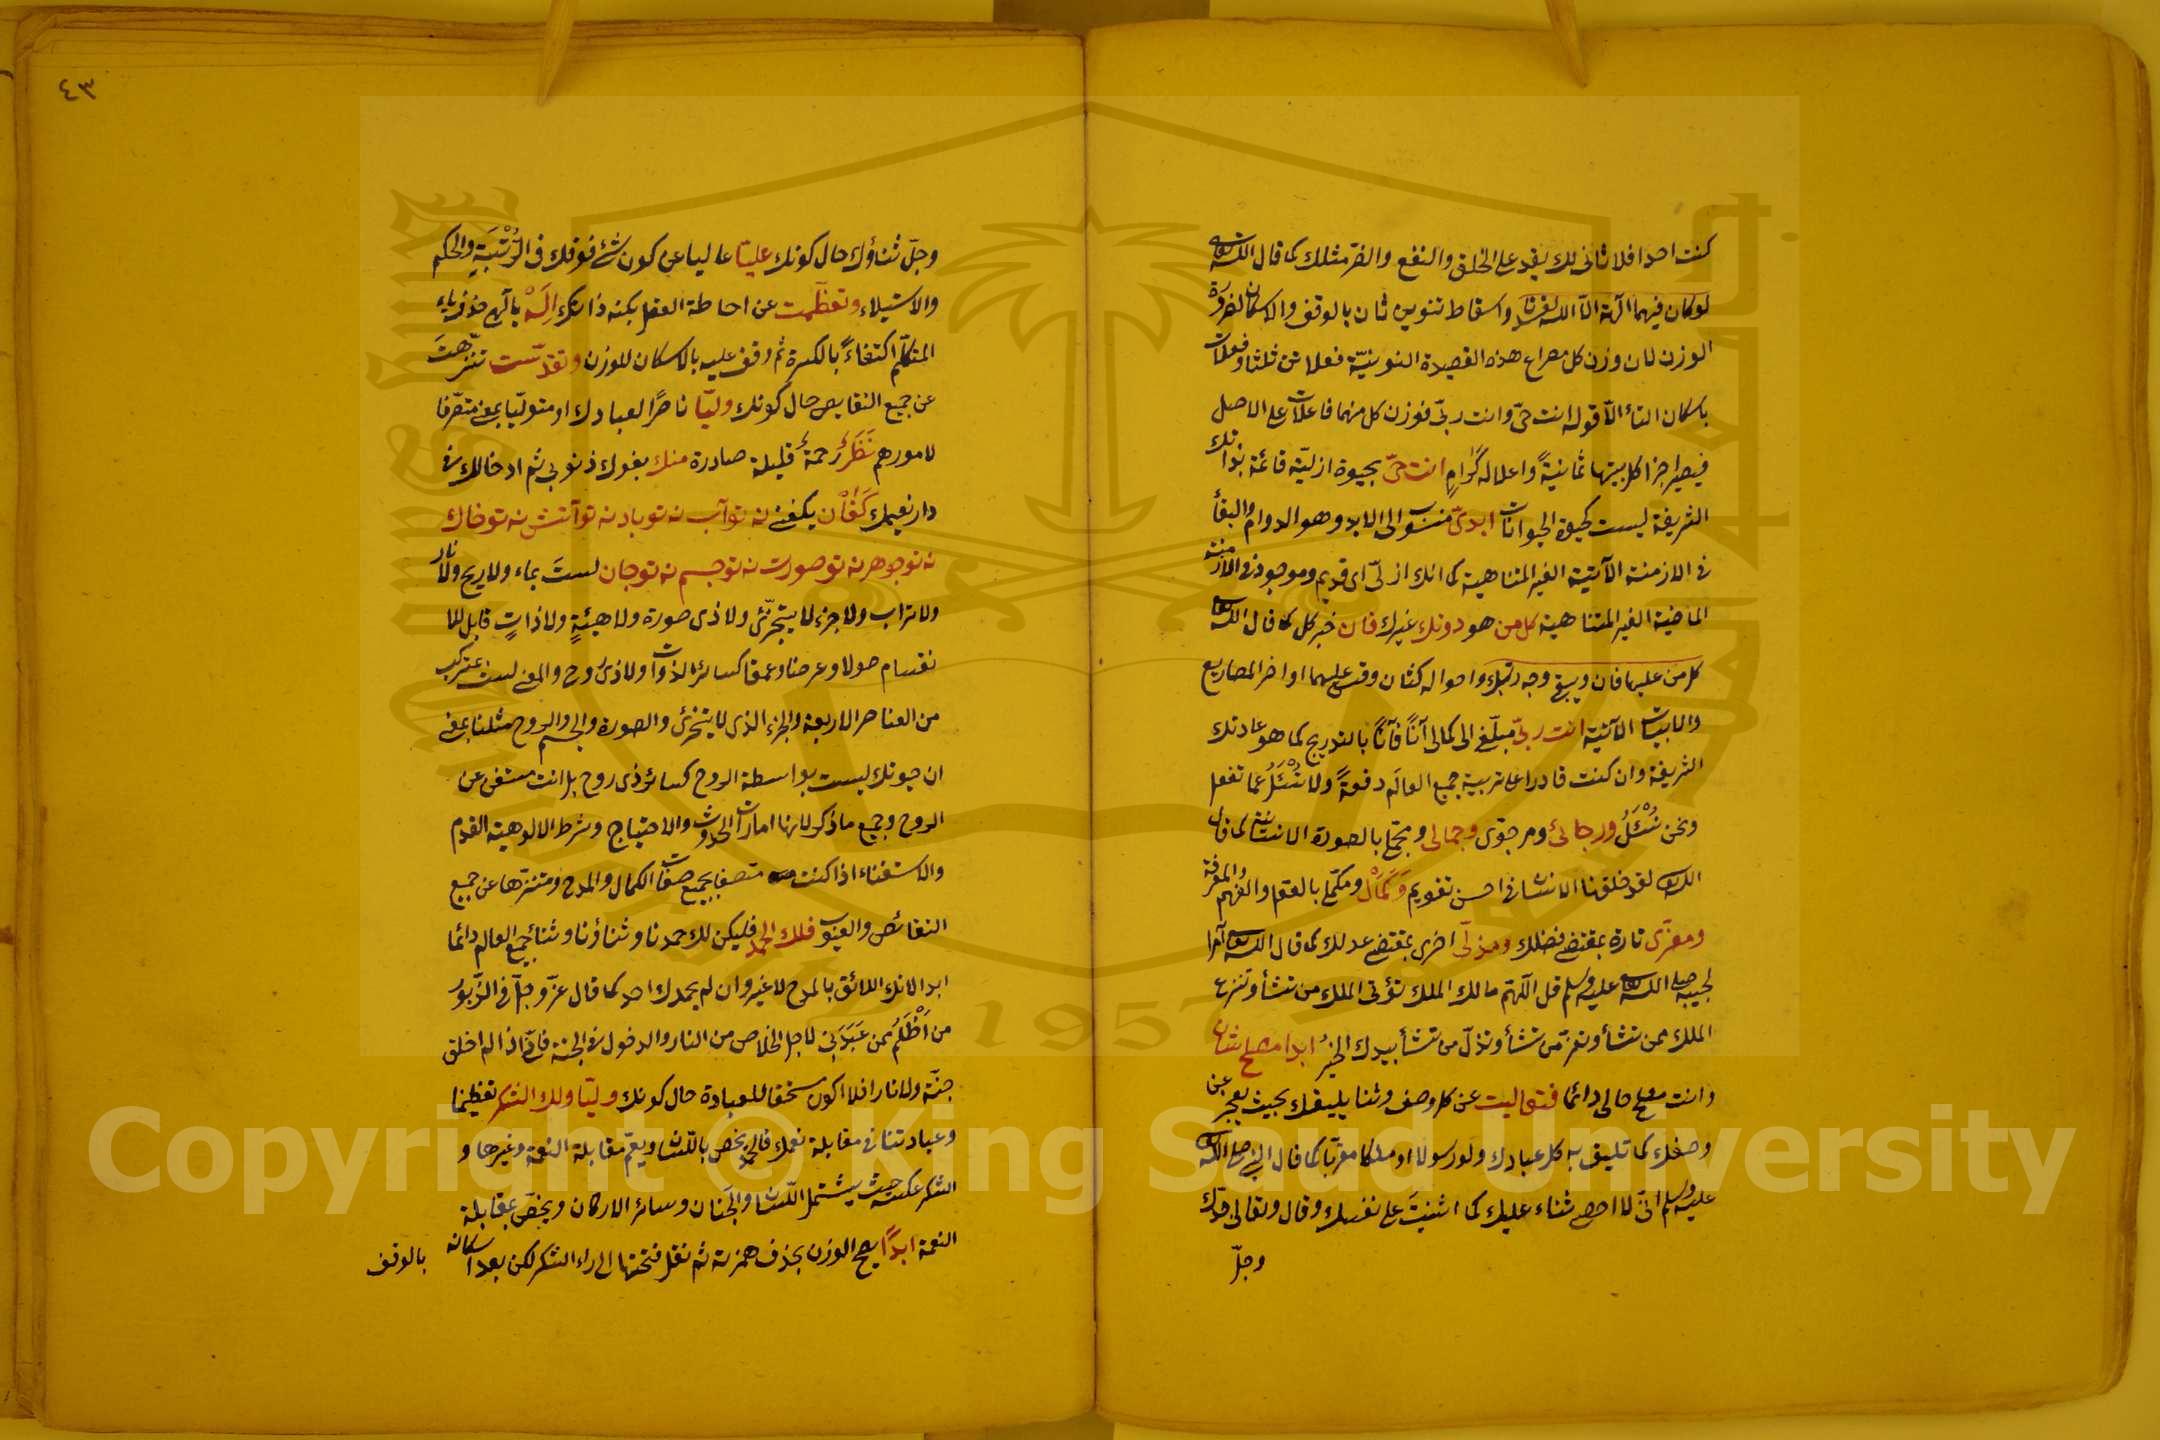 كنت احدا فلا ثاني لك يقدر على الخلق والنفع والضر مثلك كما قال الله تعالى
لو كان فيهما الهة الا الله لفسدتا واسقاط تنوين ثان بالوقف والاسكان لضرورة
الوزن لان وزن كل مصراع هذه القصيدة النونيّة فعلاتن ثلثا وفعلات
باسكان التاء الا قوله انت حيّ وانت ربّي فوزن كل منهما فاعلات على الاصل
فيصير اجزا كل بيتها ثمانيةً واعلاله گرامِ انت حيّ بحيوة ازليّة قائمة بذاتك
الشريفة ليست كحيوة الحيوانات ابديّ منسوب الى الابد وهو الدوام والبقأ
في الازمنة الآتية الغير المتناهية كما انك ازليّ اى قديم وموجود في الازمنة
الماضية الغير المتناهية كل من هو دونك غيرك فان خبر كل كما قال الله تعالى
كل من عليها فان ويبقى وجه ربك واحواله كثان وقس عليهما اواخر المصاريع
والابيات الآتية انت ربّي مبلّغي الى كمالي آناً فآناً بالتدريج كما هو عادتك
الشريفة وان كنت قادرا على تربية جميع العالَم دفعةً ولا تُسْئَلُ عما تفعل
ونحن نُسْئَلُ ورجائي ومرجوّى وجمالي ومجمّلي بالصورة الانسانية كما قال
الله تعالى لقد خلقنا الانسان في احسن تقويم وَكَمَالْ ومكمّلي بالعقل والفهم والمعرفة
ومعزّى تارة بمقتضى فضلك ومذلّي اخرى بمقتضى عدلك كما قال الله تعالى آمرا
لحبيبه صلى الله تعالى عليه وسلم قل اللّهمّ مالك الملك تؤتى الملك من تشأ وتنزع
الملك ممن تشأ وتعزّ من تشأ وتذلّ من تشأ بيدك الخيرُ ابدا مصلح شان
وانت مصلح حالي دائما فتعاليت عن كل وصف وثنا يليقك بحيث يعجز عن
وصفك كما تليق به كل عبادك ولو رسولا او ملكا مقربا كما قال النبي صلى الله تعالى
عليه وسلم انّي لا احصى ثناء عليك كما اثنيتَ على نفسك وقال وتعالى جدّك
وجلّ
٤٣
وجلّ ثناؤك حال كونك عليّا عاليا عن كون شئ فوقك في الرُّتْبَةِ والحكم
والاستيلاء وتعظّمت عن احاطة العقل بكنه ذاتك اِلَهْ يا آلهي حذف ياء
المتكلّم اكتفاءً بالكسرة ثم وقف عليه بالاسكان للوزن وتقدّست تنزّهتَ
عن جميع النقايص حال كونك وليّا ناصرًا لعبادك او متوليّا بمعنى متصرّفا
لامورهم نَظَرٌ رحمةٌ قليلة صادرة منك بعفوك ذنوبي ثم ادخالك في
دار نعيمك كَفَانْ يكفني نه تو آب نه تو باد نه تو آتش نه تو خاك
نه تو جوهر نه تو صورت نه تو جسم نه تو جان لستَ بماء ولا ريح ولا نار
ولا تراب ولا جزء لا يتجزّئ ولا ذى صورة ولا هيئةٍ ولا ذاتٍ قابل للا
نقسام طولا وعرضا وعمقا كسائر الذوات ولا ذى روح والمعنى لست بمركب
من العناصر الاربعة والجزء الذى لا يتجزئ والصورة والجسم والروح مثلنا بمعنى
ان حيوتك ليست بواسطة الروح كسائر ذى روح بل انت مستغني عن
الروح وجميع ما ذكر لانها امارات الحدوث والاحتياج وشرط الالوهية القدم
والاستغناء اذا كنت متصفا بجميع صفات الكمال والمدح ومتنزّها عن جميع
النقائص والعيوب فلك الحمد فليكن لك حمدنا وثناؤنا وثناء جميع العالم دائما
ابدا لانك اللائق بالمدح لا غير وان لم يحمدك احد كما قال عزّ وجلّ في الزّبور
من اَظْلَمُ ممن عَبَدَني لاجل الخلاص من النار والدخول في الجنة فانّي اذا لم اخلق
جنّة ولا نارا فلا اكون مستحقا للعبادة حال كونك وليّا ولك الشكر تعظيمنا
وعبادتنا في مقابلة نعمك فالحمد يخص باللّسان ويعمّ مقابلة النعمة وغيرها و
الشكر عكسه حيث يشتمل اللّسان والجَنان وسائر الاركان ويخصّ بمقابلة
النعمة ابدًا يصح الوزن بحذف همزته ثم نقل فتحتها الى راء الشكر لكن بعد اسكانه
بالوقف
Copyright © King Saud University
1957